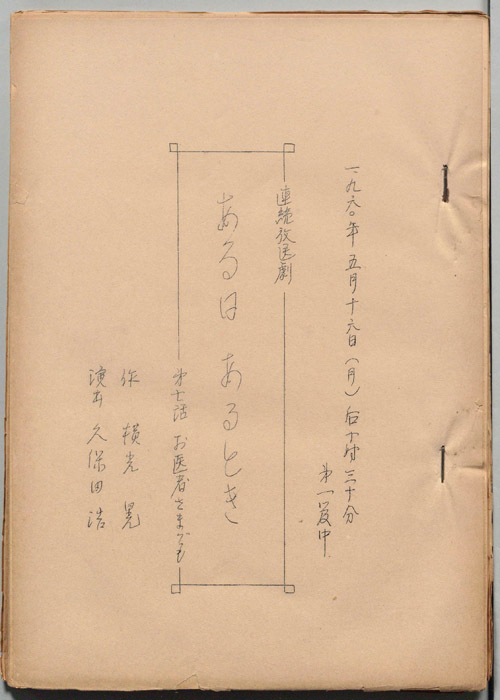 一九六〇年 五月十六日(月) 后十时三十分
第一
連続放送劇
ある日 あるとき
第七話 お医者さまでも
作 横光 晃
演出 久保田 浩